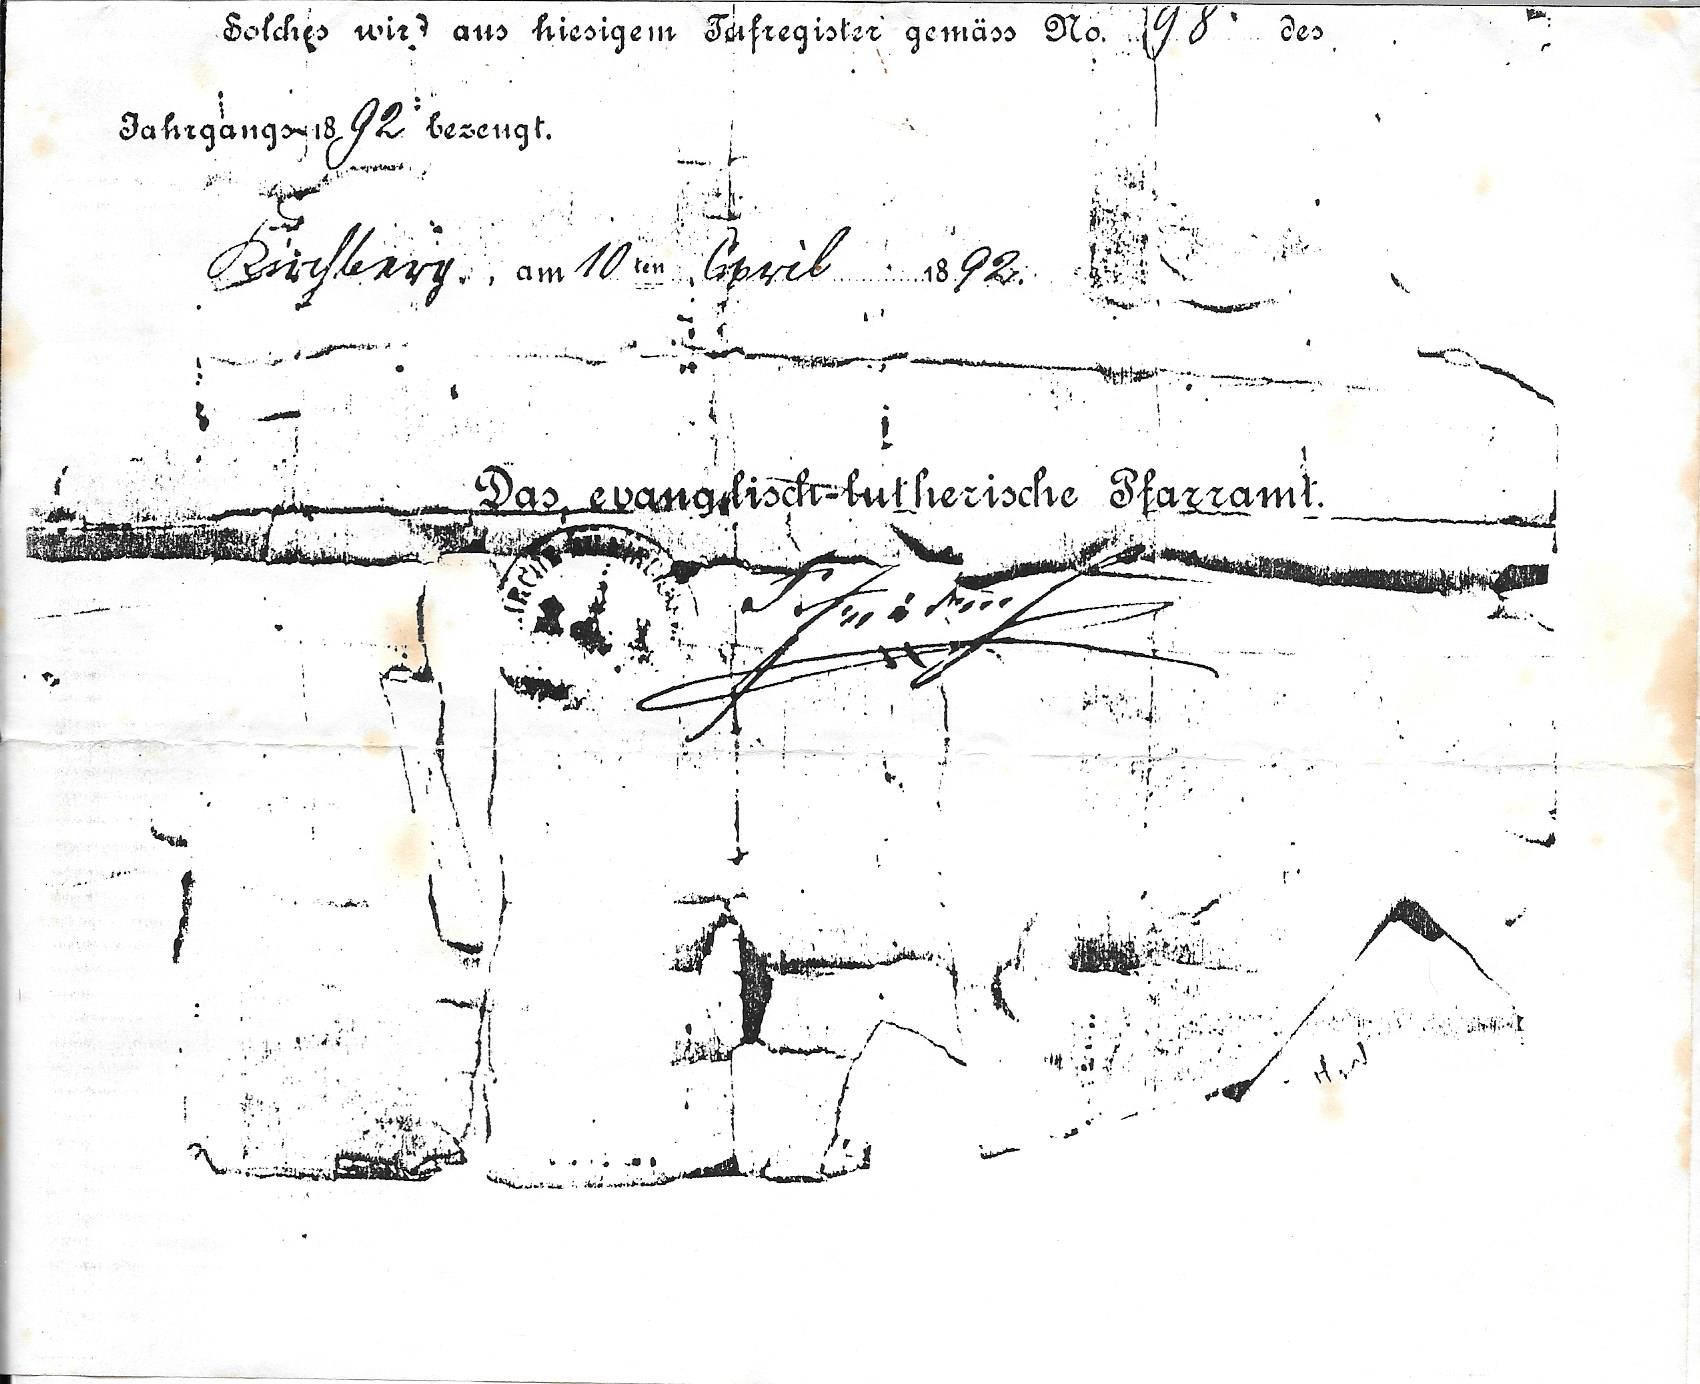 Solches wird aus hiesigem Taufregister gemäss No. 98 des
Jahrgangs 1892 bezeugt.
Kirchberg, am 10ten April 1892.
Das evangelisch-lutherische Pfarramt.